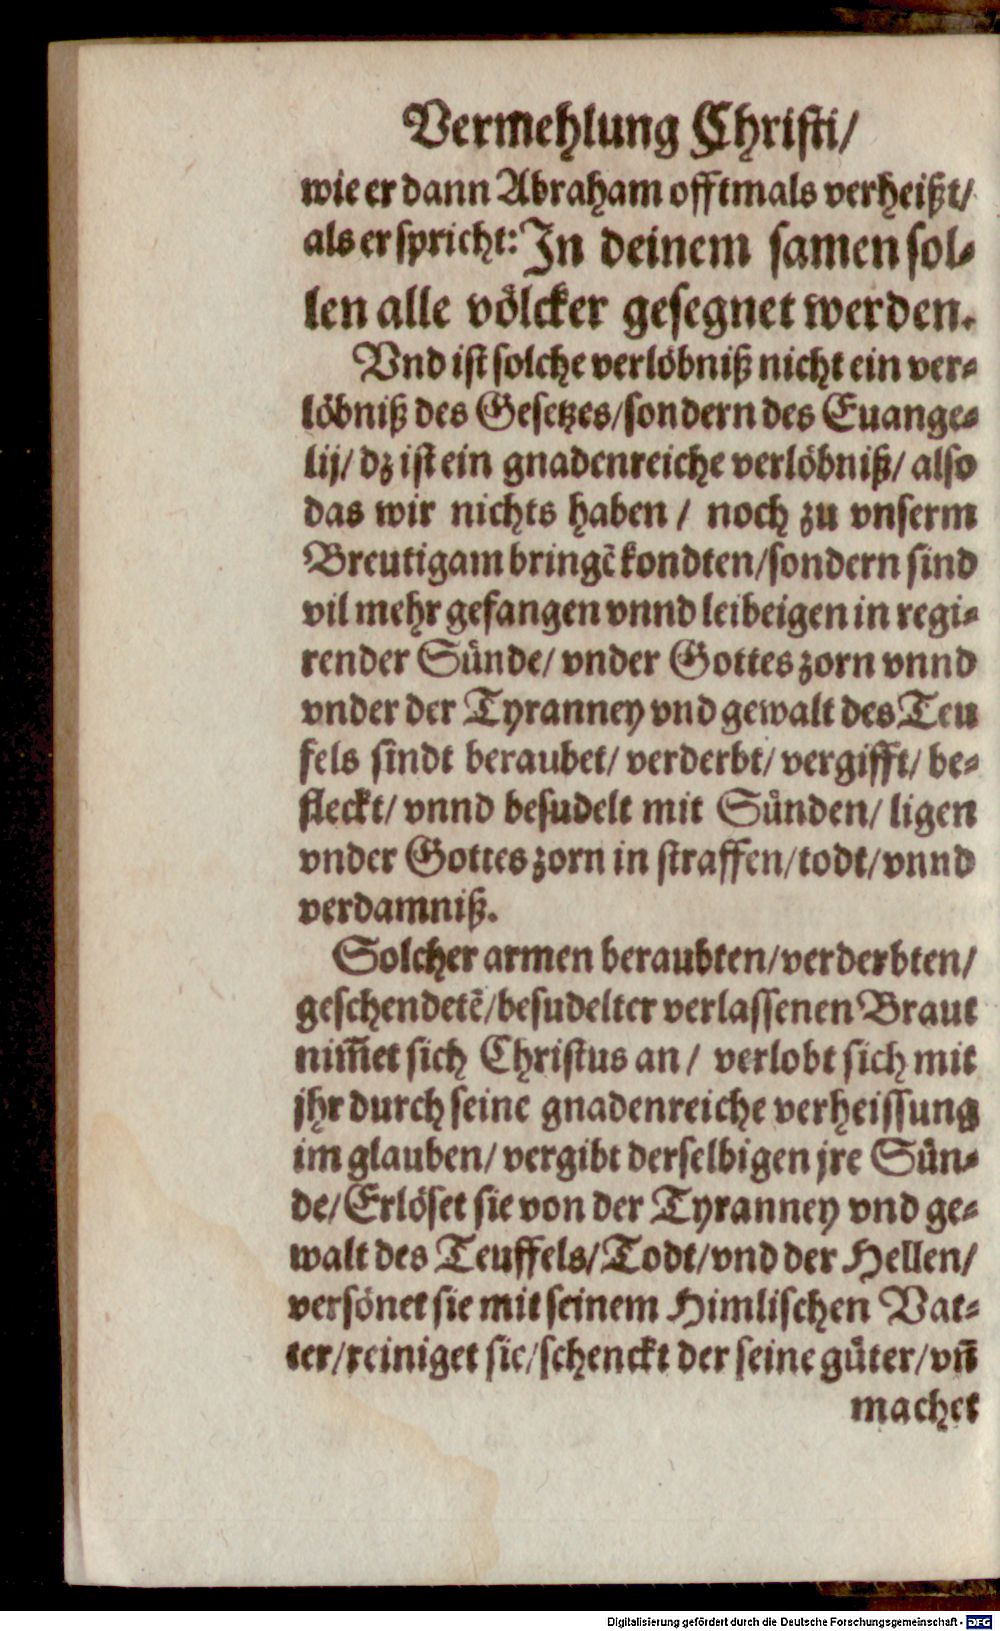 Vermehlung Christi/
wie er dann Abraham offtmals verheißt/
als er spricht: In deinem samen sol-
len alle völcker gesegnet werden.
Vnd ist solche verlöbniß nicht ein ver-
löbniß des Gesetzes/ sondern des Euange-
lij/ dz ist ein gnadenreiche verlöbniß/ also
das wir nichts haben / noch zu vnserm
Breutigam bringē kondten/ sondern sind
vil mehr gefangen vnnd leibeigen in regi-
render Sünde/ vnder Gottes zorn vnnd
vnder der Tyranney vnd gewalt des Teu
fels sindt beraubet/ verderbt/ vergifft/ be-
fleckt/ vnnd besudelt mit Sünden/ ligen
vnder Gottes zorn in straffen/ todt/ vnnd
verdamniß.
Solcher armen beraubten/ verderbten/
geschendetē/ besudelter verlassenen Braut
nim̄et sich Christus an / verlobt sich mit
jhr durch seine gnadenreiche verheissung
im glauben/ vergibt derselbigen jre Sün-
de/ Erlöset sie von der Tyranney vnd ge-
walt des Teuffels/ Todt/ vnd der Hellen/
versönet sie mit seinem Himlischen Vat-
ter/ reiniget sie/ schenckt der seine güter/ vn̄
machet
Digitalisierung gefördert durch die Deutsche Forschungsgemeinschaft - DFG